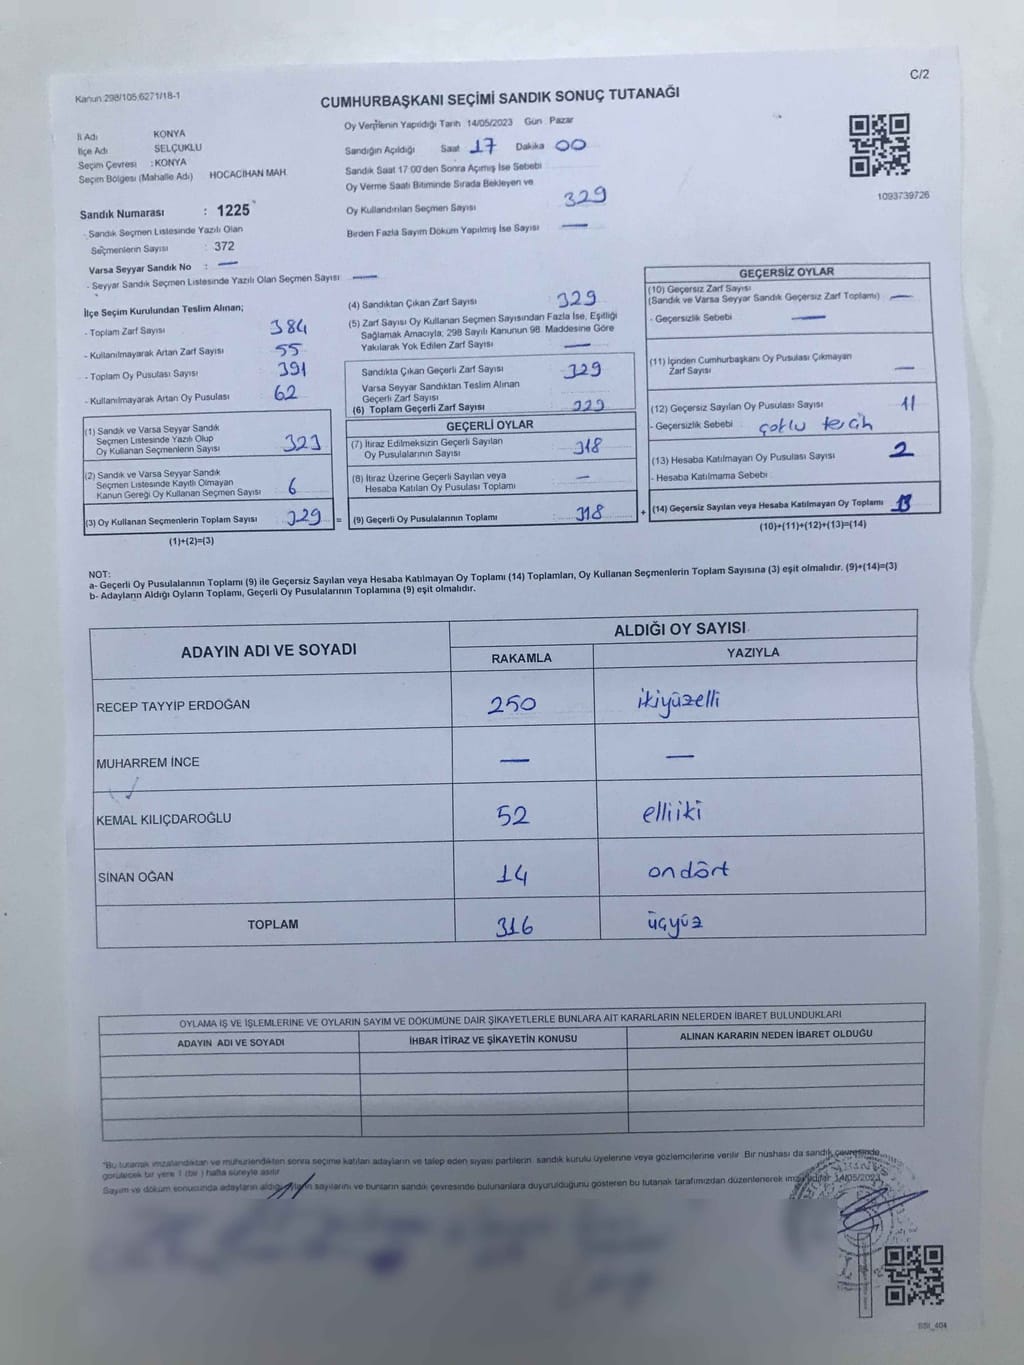 C/2
Kanun 298/105,6271/18-1
CUMHURBAŞKANI SEÇİMİ SANDIK SONUÇ TUTANAĞI
İl Adı KONYA
İlçe Adı SELÇUKLU
Seçim Çevresi : KONYA
Seçim Bölgesi (Mahalle Adı) HOCACİHAN MAH.
Oy Vermenin Yapıldığı Tarih 14/05/2023 Gün Pazar
Sandığın Açıldığı Saat 17 Dakika 00
Sandık Saat 17:00'den Sonra Açmış İse Sebebi
Oy Verme Saati Bitiminde Sırada Bekleyen ve
Oy Kullandırılan Seçmen Sayısı 329
Birden Fazla Sayım Döküm Yapılmış İse Sayısı —
1093739726
Sandık Numarası : 1225
- Sandık Seçmen Listesinde Yazılı Olan
Seçmenlerin Sayısı : 372
Varsa Seyyar Sandık No : —
- Seyyar Sandık Seçmen Listesinde Yazılı Olan Seçmen Sayısı: —
İlçe Seçim Kurulundan Teslim Alınan;
- Toplam Zarf Sayısı 384
- Kullanılmayarak Artan Zarf Sayısı 55
- Toplam Oy Pusulası Sayısı 391
- Kullanılmayarak Artan Oy Pusulası 62
(1) Sandık ve Varsa Seyyar Sandık
Seçmen Listesinde Yazılı Olup
Oy Kullanan Seçmenlerin Sayısı 323
(2) Sandık ve Varsa Seyyar Sandık
Seçmen Listesinde Kayıtlı Olmayan
Kanun Gereği Oy Kullanan Seçmen Sayısı 6
(3) Oy Kullanan Seçmenlerin Toplam Sayısı 329 =
(1)+(2)=(3)
(4) Sandıktan Çıkan Zarf Sayısı 329
(5) Zarf Sayısı Oy Kullanan Seçmen Sayısından Fazla İse, Eşitliği
Sağlamak Amacıyla; 298 Sayılı Kanunun 98. Maddesine Göre
Yakılarak Yok Edilen Zarf Sayısı —
Sandıkta Çıkan Geçerli Zarf Sayısı 329
Varsa Seyyar Sandıktan Teslim Alınan
Geçerli Zarf Sayısı
(6) Toplam Geçerli Zarf Sayısı 329
GEÇERLİ OYLAR
(7) İtiraz Edilmeksizin Geçerli Sayılan
Oy Pusulalarının Sayısı 318
(8) İtiraz Üzerine Geçerli Sayılan veya
Hesaba Katılan Oy Pusulası Toplamı —
(9) Geçerli Oy Pusulalarının Toplamı 318 +
GEÇERSİZ OYLAR
(10) Geçersiz Zarf Sayısı
(Sandık ve Varsa Seyyar Sandık Geçersiz Zarf Toplamı) —
- Geçersizlik Sebebi —
(11) İçinden Cumhurbaşkanı Oy Pusulası Çıkmayan
Zarf Sayısı —
(12) Geçersiz Sayılan Oy Pusulası Sayısı 11
- Geçersizlik Sebebi çoklu tercih
(13) Hesaba Katılmayan Oy Pusulası Sayısı 2
- Hesaba Katılmama Sebebi
(14) Geçersiz Sayılan veya Hesaba Katılmayan Oy Toplamı 13
(10)+(11)+(12)+(13)=(14)
NOT:
a- Geçerli Oy Pusulalarının Toplamı (9) ile Geçersiz Sayılan veya Hesaba Katılmayan Oy Toplamı (14) Toplamları, Oy Kullanan Seçmenlerin Toplam Sayısına (3) eşit olmalıdır. (9)+(14)=(3)
b- Adayların Aldığı Oyların Toplamı, Geçerli Oy Pusulalarının Toplamına (9) eşit olmalıdır.
ADAYIN ADI VE SOYADI
ALDIĞI OY SAYISI
RAKAMLA YAZIYLA
RECEP TAYYİP ERDOĞAN 250 ikiyüzelli
MUHARREM İNCE — —
KEMAL KILIÇDAROĞLU 52 elliiki
SİNAN OĞAN 14 ondört
TOPLAM 316 üçyüz
OYLAMA İŞ VE İŞLEMLERİNE VE OYLARIN SAYIM VE DÖKÜMÜNE DAİR ŞİKAYETLERLE BUNLARA AİT KARARLARIN NELERDEN İBARET BULUNDUKLARI
ADAYIN ADI VE SOYADI İHBAR İTİRAZ VE ŞİKAYETİN KONUSU ALINAN KARARIN NEDEN İBARET OLDUĞU
"Bu tutanak imzalandıktan ve mühürlendikten sonra seçime katılan adayların ve talep eden siyasi partilerin sandık kurulu üyelerine veya gözlemcilerine verilir. Bir nüshası da sandık çevresinde
görülecek bir yere 1 (bir) hafta süreyle asılır.
Sayım ve döküm sonucunda adayların aldığı oyların sayılarını ve bunların sandık çevresinde bulunanlara duyurulduğunu gösteren bu tutanak tarafımızdan düzenlenerek imzalıdır 14/05/2023